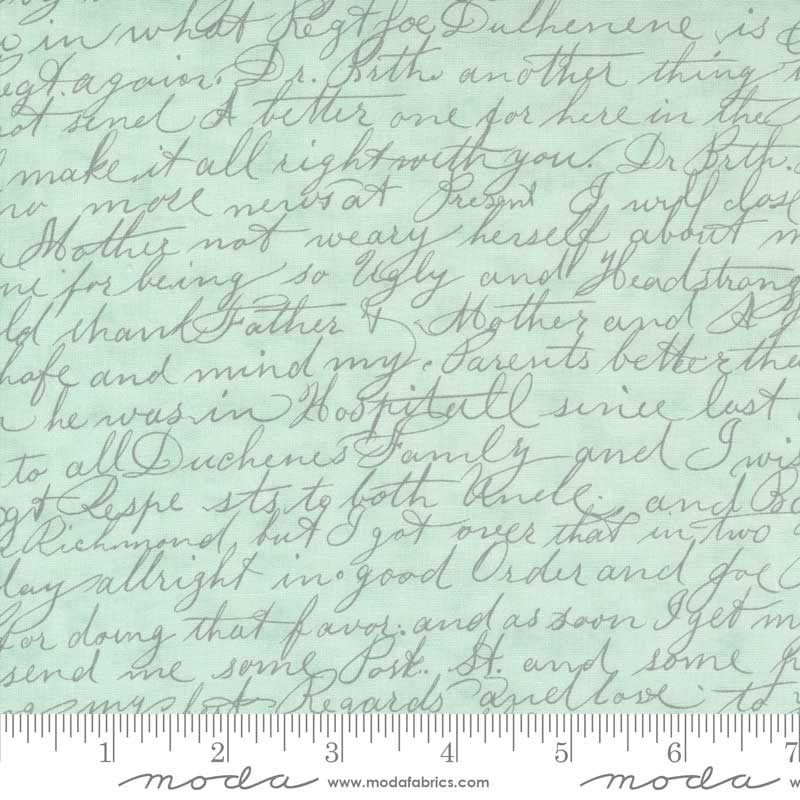 in what Regt Joe Duchenene is
Regt. again. Dr. Brth. another thing
not send A better one for here in the
make it all right with you. Dr Brth.
no more news at Present I will close
Mother not weary herself about m
me for being so Ugly and Headstrong
ld thank Father & Mother and A
hafe and mind my. Parents better the
he was in Hospitall since last
to all Duchenes Family and I wis
gt Respe sts, to both Uncle. and Bo
Richmond, but I got over that in two
day allright in good Order and Joe
for doing that favor. and as soon I get m
send me some Post. St. and some p
my Regards and love to
1 2 3 4 5 6 7
moda www.modafabrics.com moda w